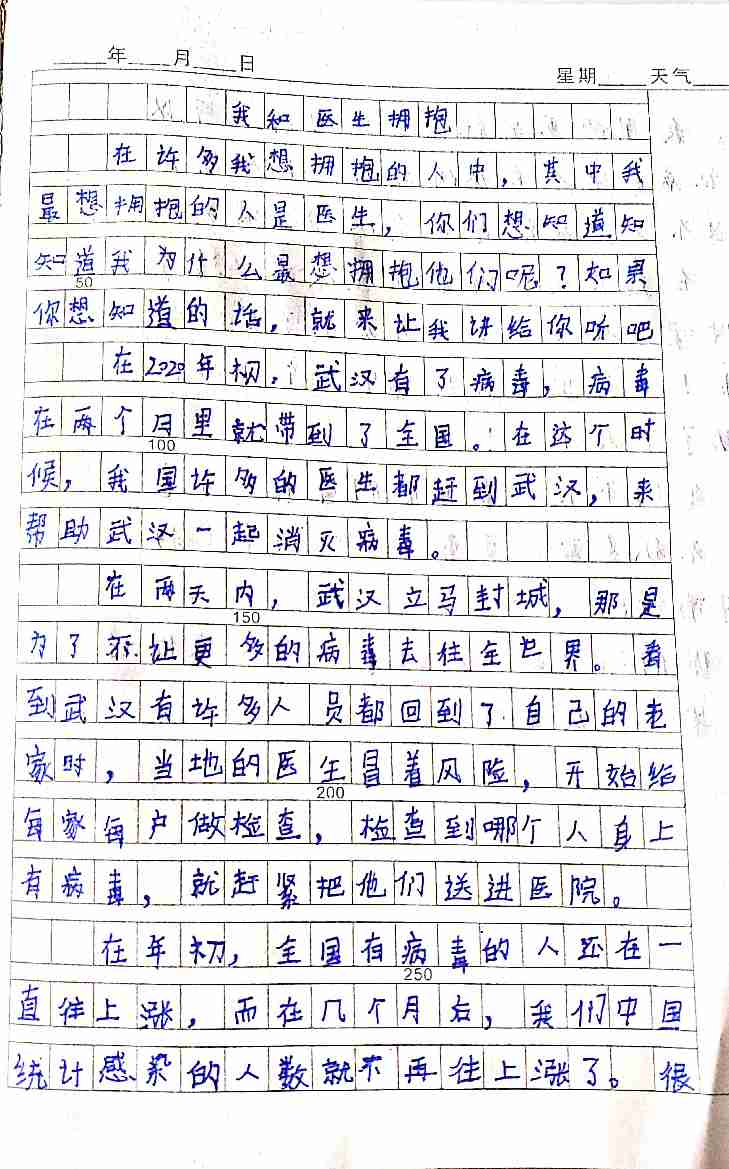 ____年____月____日
星期____天气____
我和医生拥抱
在许多我想拥抱的人中，其中我
最想拥抱的人是医生，你们想知道知
知道我为什么最想拥抱他们呢？如果
50
你想知道的话，就来让我讲给你听吧
在2020年初，武汉有了病毒，病毒
在两个月里就带到了全国。在这个时
100
候，我国许多的医生都赶到武汉，来
帮助武汉一起消灭病毒。
在两天内，武汉立马封城，那是
150
为了不让更多的病毒去往全世界。看
到武汉有许多人员都回到了自己的老
家时，当地的医生冒着风险，开始给
200
每家每户做检查，检查到哪个人身上
有病毒，就赶紧把他们送进医院。
在年初，全国有病毒的人还在一
250
直往上涨，而在几个月后，我们中国
统计感染的人数就不再往上涨了。很